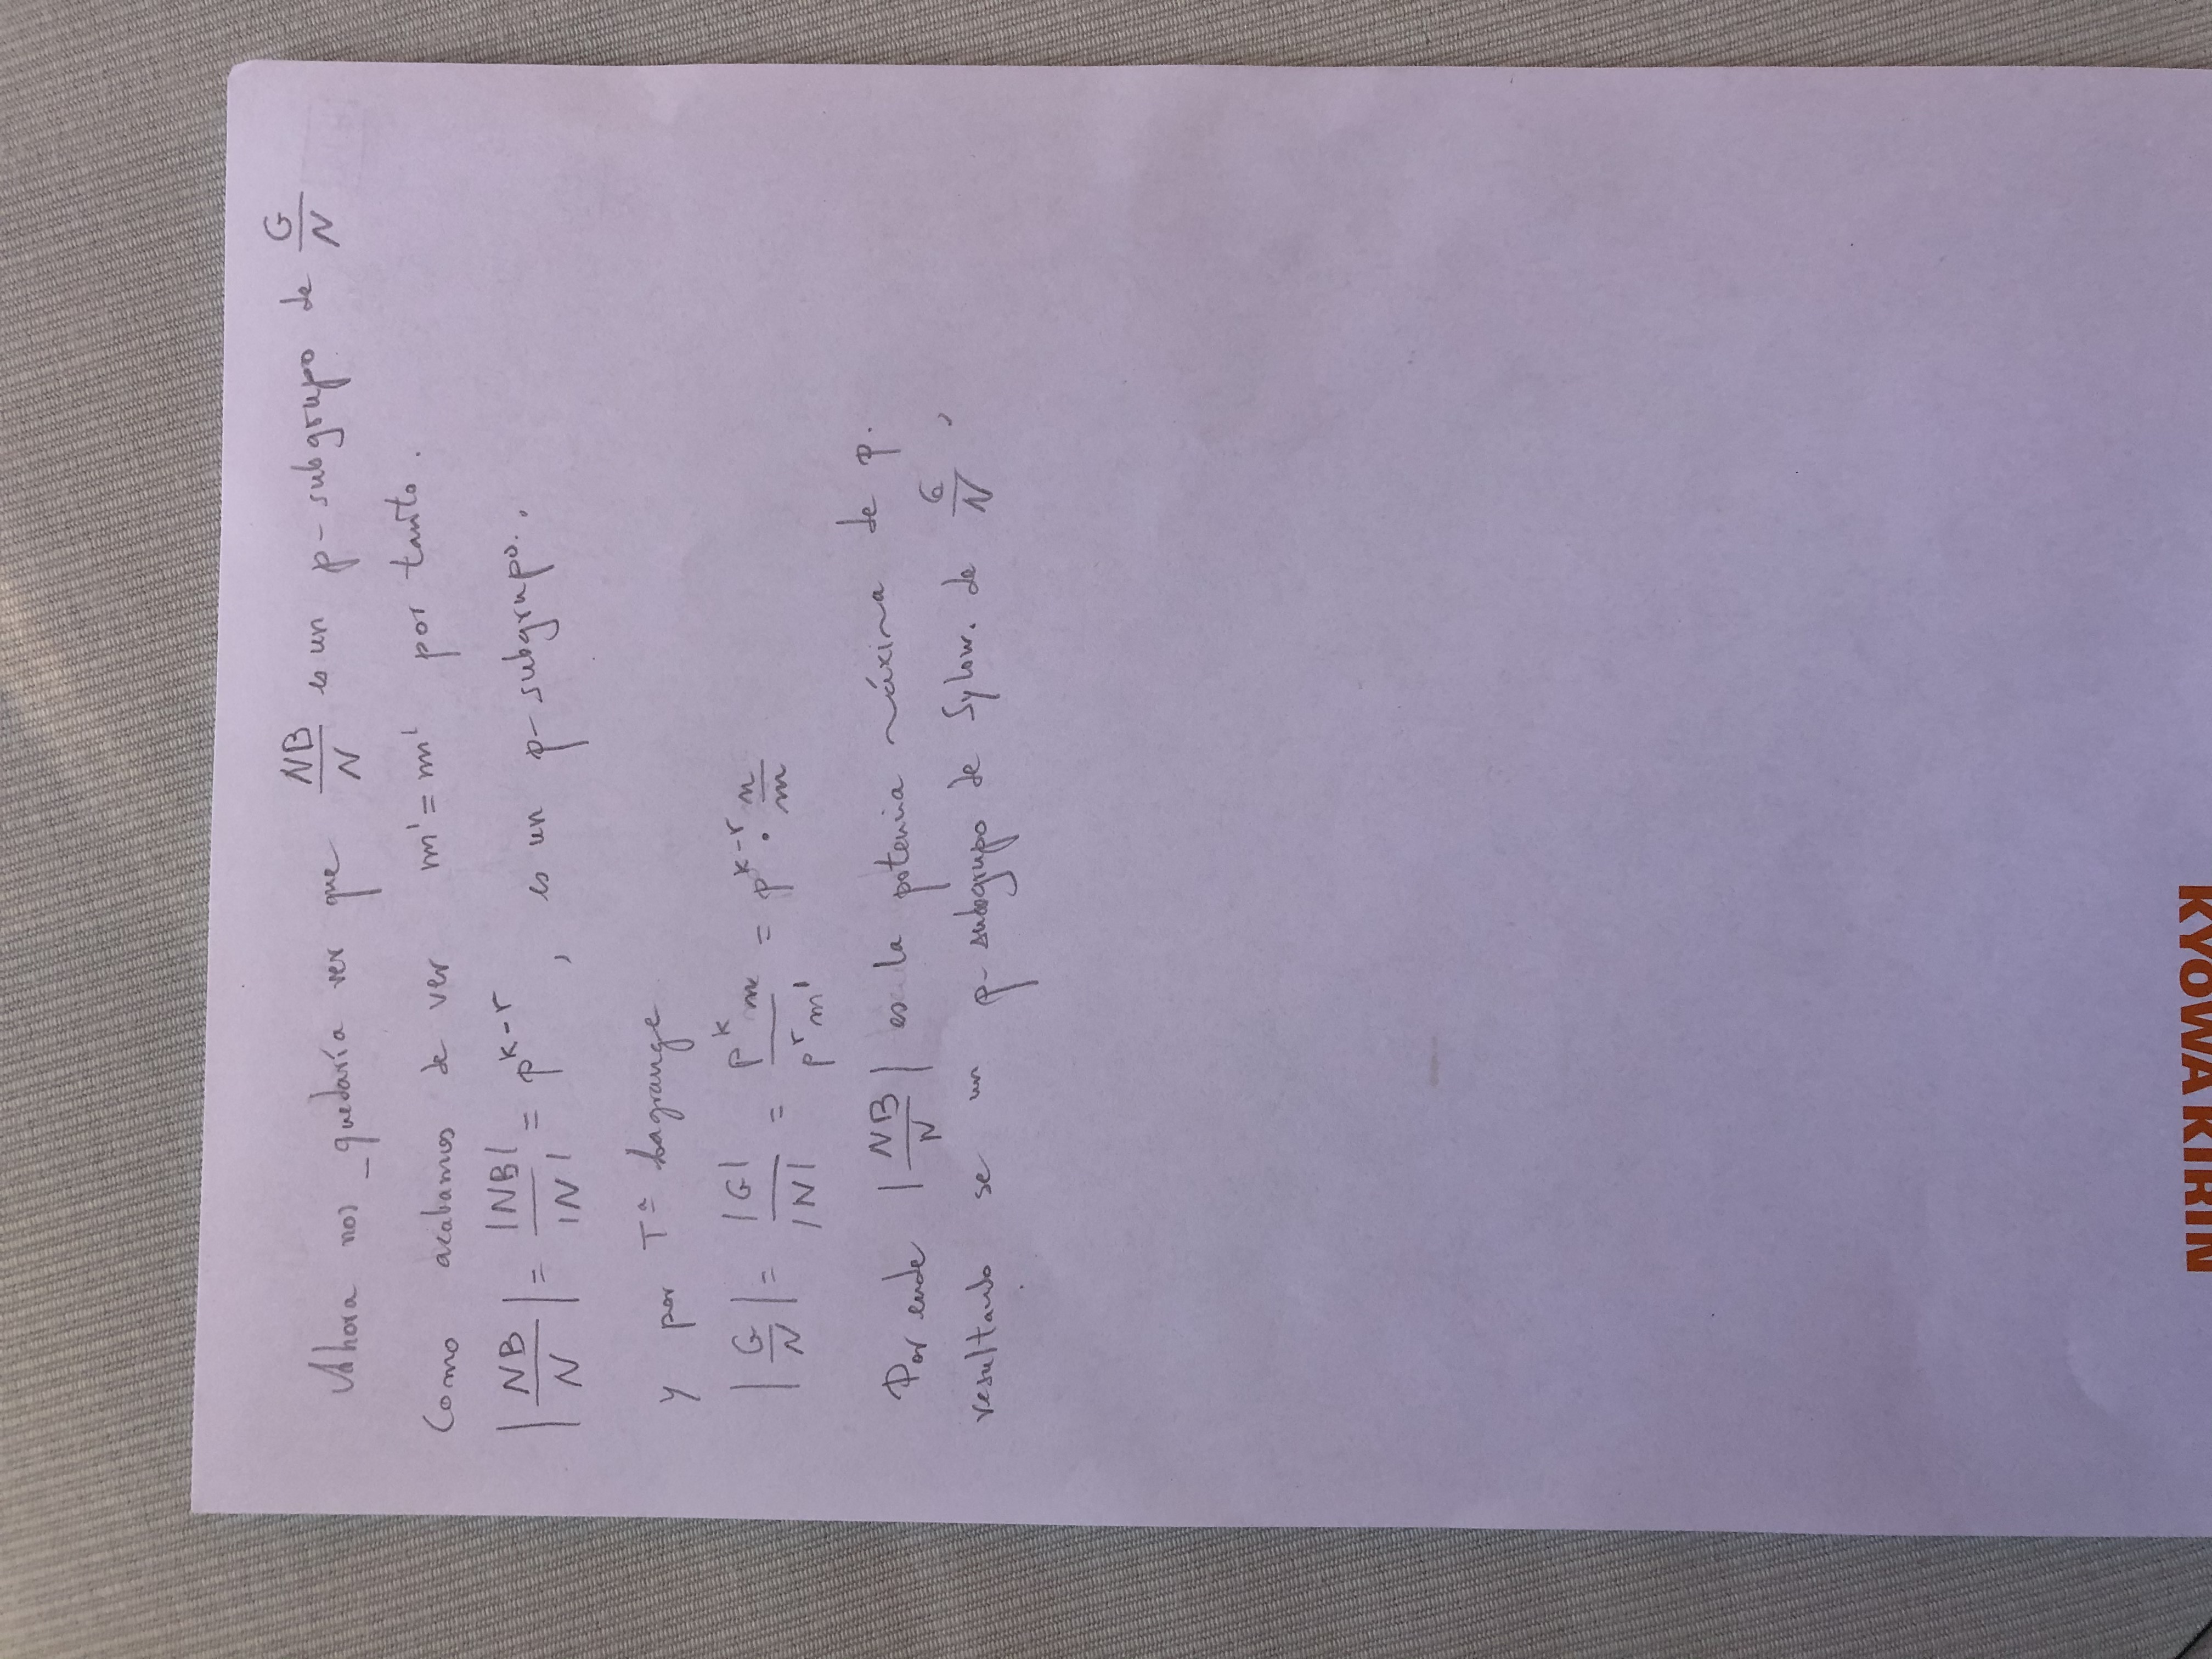 Ahora nos quedaría ver que NB/N es un p-subgrupo de G/N
Como acabamos de ver m' = m' por tanto.
|NB/N| = |NB|/|N| = p^{k-r}, es un p-subgrupo.
y por Tª Lagrange
|G/N| = |G|/|N| = p^k m/p^r m' = p^{k-r} · n/m
Por ende |NB/N| es la potencia máxima de p.
resultando se un p-subgrupo de Sylow. de G/N,
KYOWA KIRIN